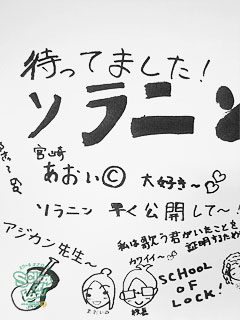 待ってました!
ソラニン
宮崎
あおい©
大好き~♡♡
ソラニン 早く公開して~!
アジカン先生~
私は歌う君がいたことを
証明するため
カワイイ~
SCHOOL
OF
LOCK!
あおいの
校長